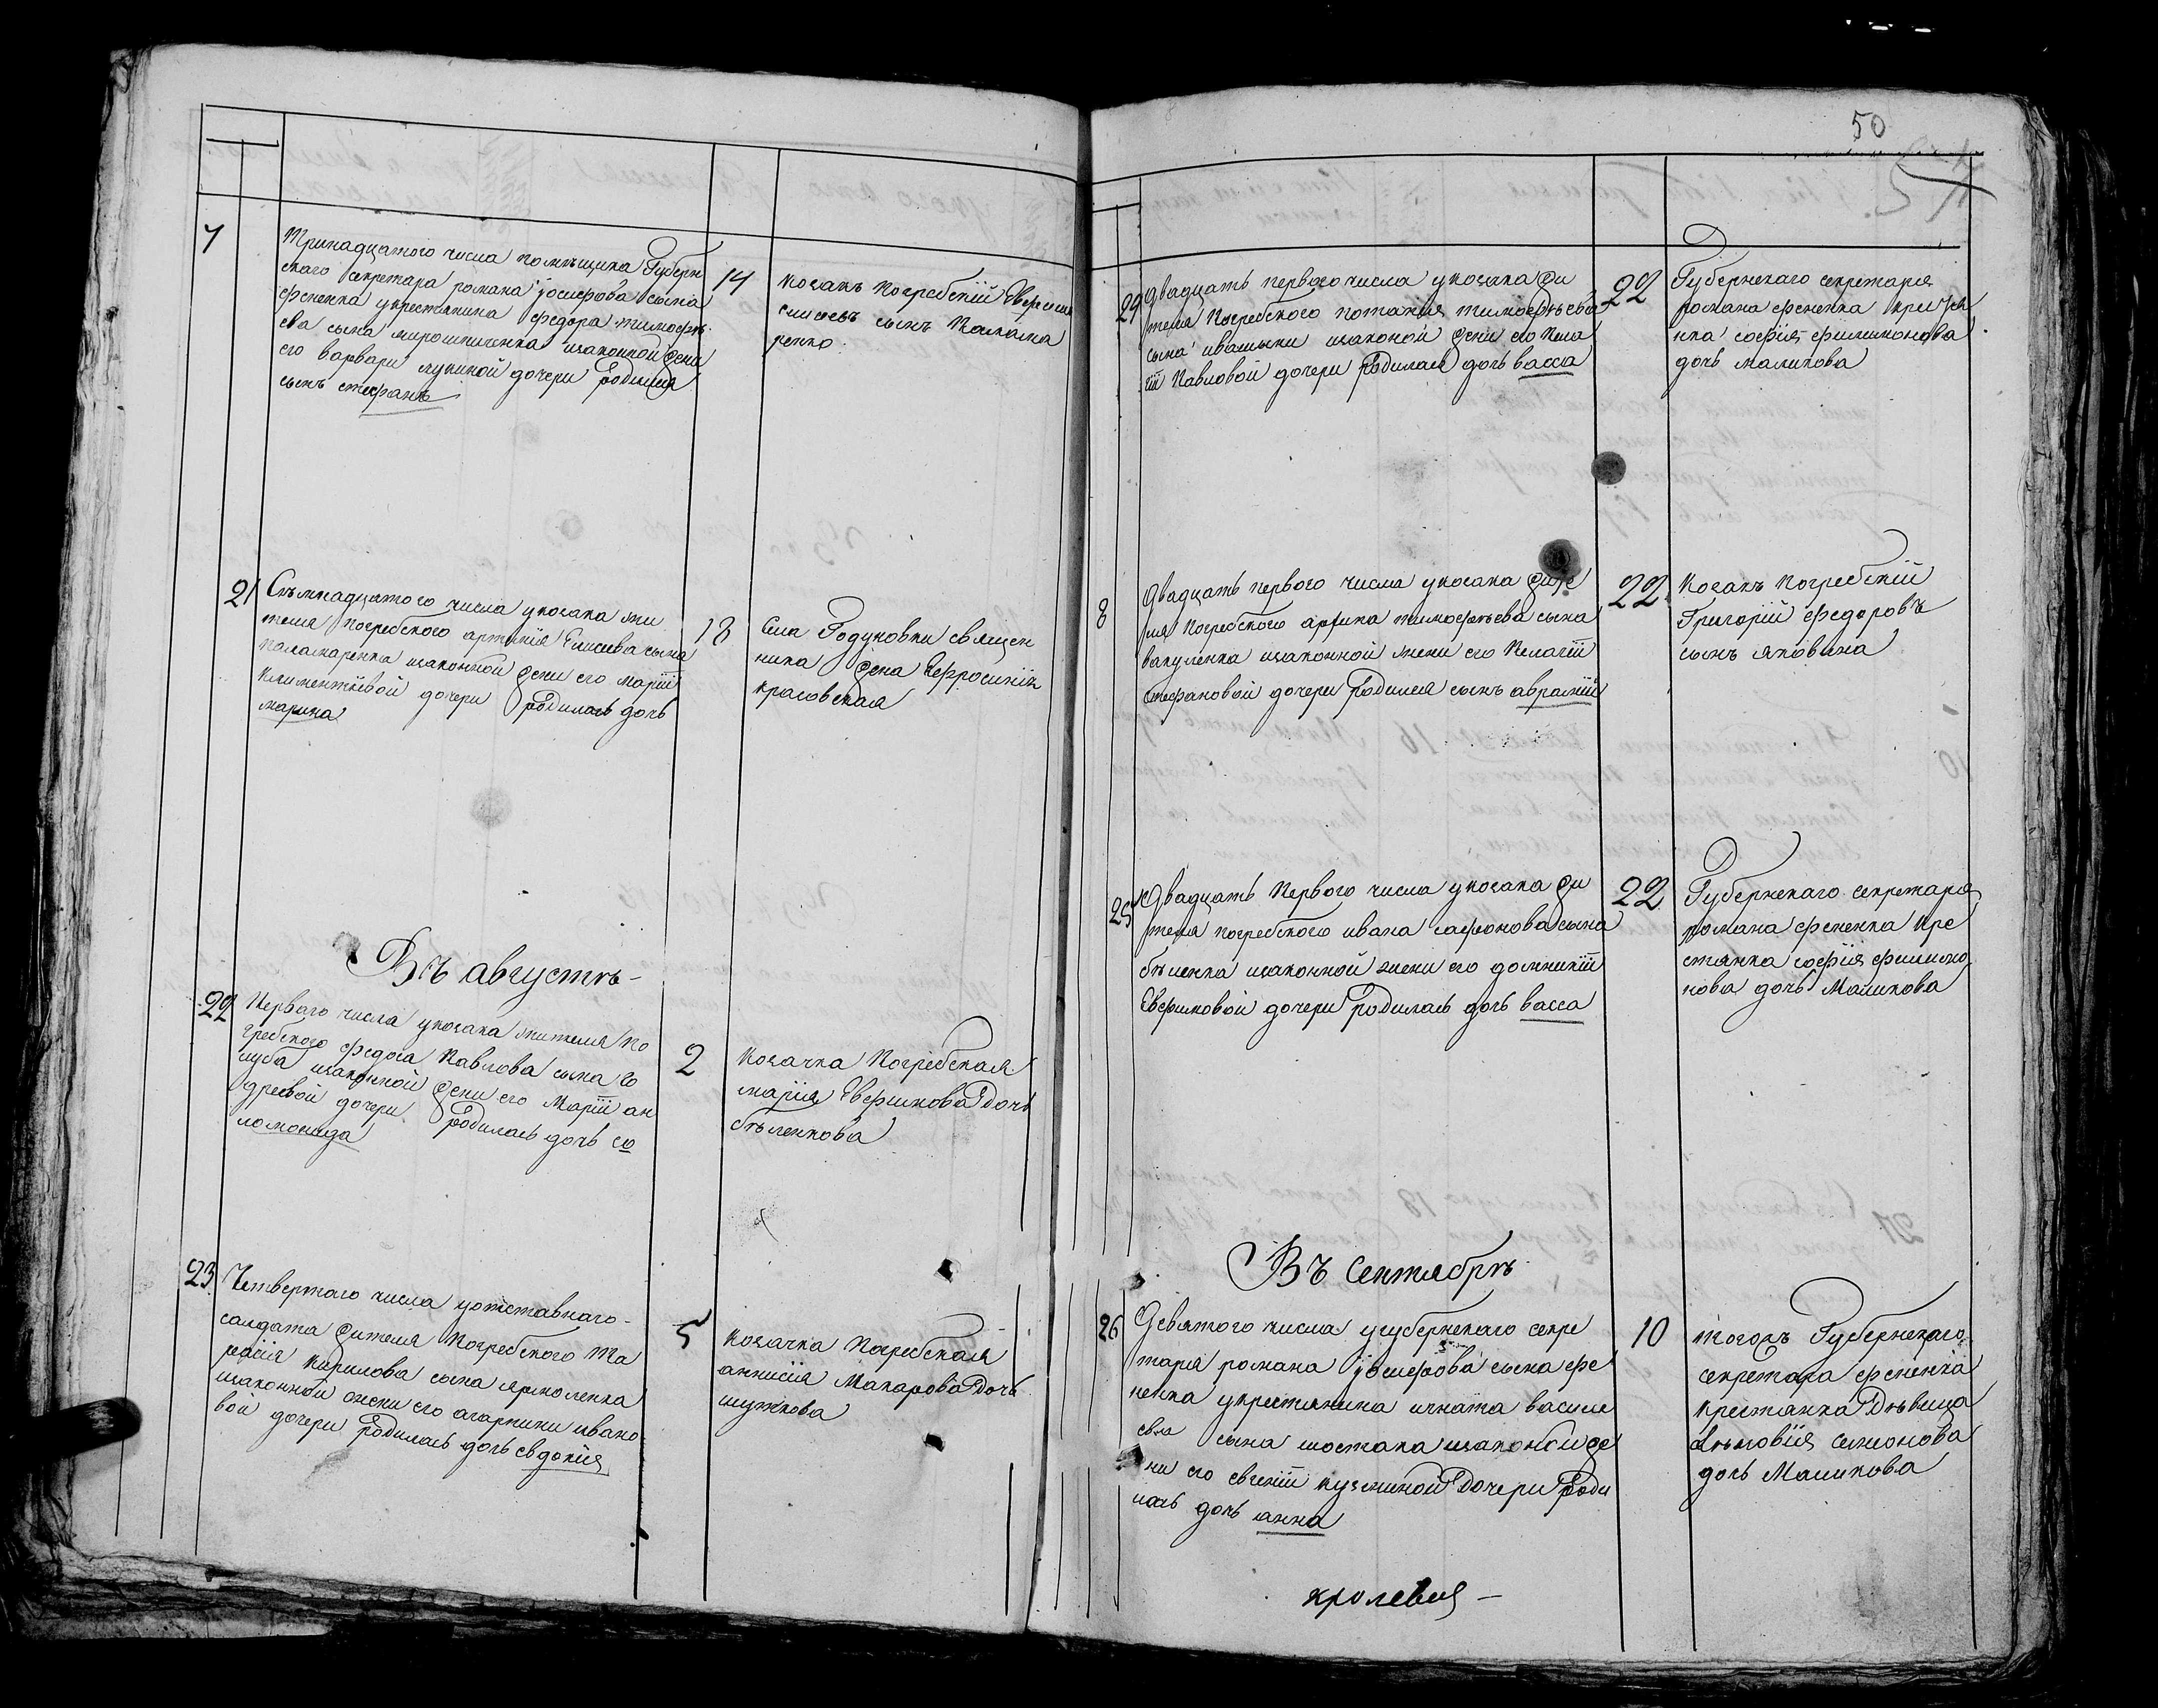 7
Тринадцатого числа помѣщика Губерн
скаго секретара романа іосифова сына
фененка укрестянина федора тимофѣ
ева сына мирошниченка изаконной жени
его варвари лукиной дочери родился
сынъ стефанъ
14
козакъ Погребскій
сынъ Палама
ренко
21
Семнадцатого числа укозака жи
теля погребского артемія Елисеева сына
паламаренка изаконной жени его маріи
климентіевой дочери родилась дочь
марина
18
Села Годуновки священ
ника жена Ефросинія
красовская
Въ августѣ
22
Перваго числа укозака жителя по
гребского федора Павлова сына го
луба изаконной жени его маріи ан
дреевой дочери родилась дочь со
ломонида
2
козачка Погребская
марія Евфимова дочь
бѣленкова
23
Четвертаго числа уотставнаго
салдата жителя Погребского Та
расія кирилова сына ярмоленка
изаконной жени его агарпини ивано
вой дочери родилась дочь евдокія
5
козачка Погребская
аннисія Макарова дочь
шужкова
50
24
Двадцать перваго числа укозака жи
теля Погребского потапія тимофѣева
сына ивашини изаконой жени его Пела
гіи Павловой дочери родилась дочь васса
22
Губернскаго секретаря
романа фененка крестя
нка софія филимонова
дочь маликова
8
Двадцать первого числа укозака жите
ля Погребского тимофѣева сына
вакуленка изаконной жени его Пелагіи
стефановой дочери родился сынъ аврамій
22
козакъ погребскій
Григорій федоровъ
сынъ яковина
25
Двадцать Первого числа укозака жи
теля погребского ивана сафонова сына
бѣленка изаконной жени его домникіи
Евфимовой дочери родилась дочь васса
22
Губернскаго секретаря
романа фененка кре
стянка софія филимо
нова дочь Маликова
Въ Сентябрѣ
26
Девятого числа угубернскаго секре
таря романа іосифова сына фе
ненка укрестянина игната василе
ева сына шостака изаконой же
ни его евгеніи кузминой дочери роди
лась дочь анна
10
тогожъ Губернскаго
секретара фененка
крестянка Дѣвица
семіонова
дочь Маликова